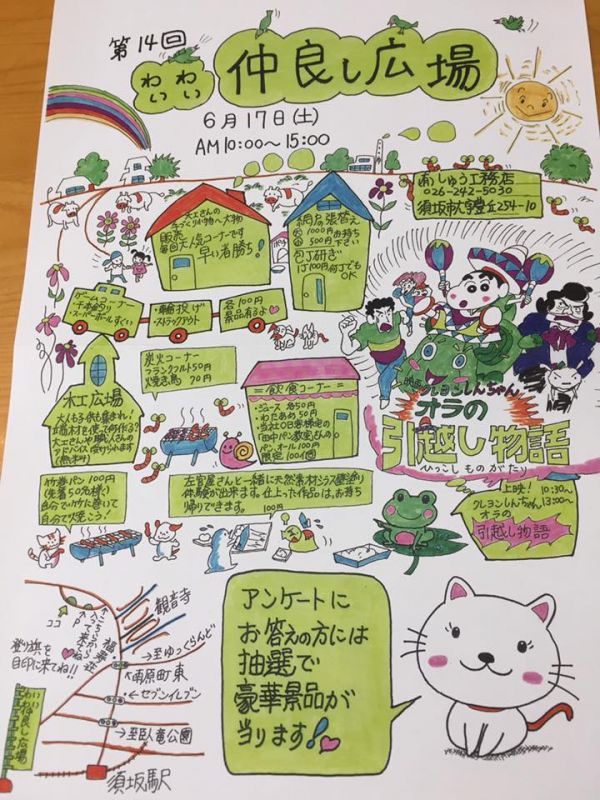 第14回
わい わい
仲良し広場
6月17日(土)
AM10:00〜15:00
(有)しゅう工務店
026-242-5030
須坂市大字豊丘254-10
大工さんの
手づくり小物〜大物
販売
毎回大人気コーナーです
早い者勝ち!
網戸張替え
大1000円お持ち
小500円下さい
包丁研ぎ
1丁100円何丁でも
OK
ゲームコーナー
・千本釣り
・スーパーボールすくい
・輪投げ
・ストラックアウト
各100円
景品有るよ
木工広場
大人も子供も集まれ!
端材を使って何作る?
大工さんや職人さんの
アドバイス受けられます
(無料)
炭火コーナー
フランクフルト50円
焼き鳥 70円
=飲食コーナー=
・ジュース 各50円
・わたあめ 50円
・当社OBお客様宅の
「田中パン教室」さんの
パン・オール100円
限定100個
映画クレヨンしんちゃん
オラの
引越し物語
ひっこし ものがたり
竹巻パン 100円
(先着50名様)
自分で竹に巻いて
自分で焼こう
左官屋さんと一緒に天然素材シラス壁塗り
体験が出来ます。仕上った作品は、お持ち
帰りできます。
100円
上映! 10:30〜
クレヨンしんちゃん 13:00〜
オラの
引越し物語
観音寺
ココ
こちらからも来てネ
福寿荘
登り旗を
目印に来てね!!
→至ゆっくらんど
←南原町東
←セブンイレブン
→至臥竜公園
わいわい
仲良し広場
須坂駅
アンケートに
お答えの方には
抽選で
豪華景品が
当ります!